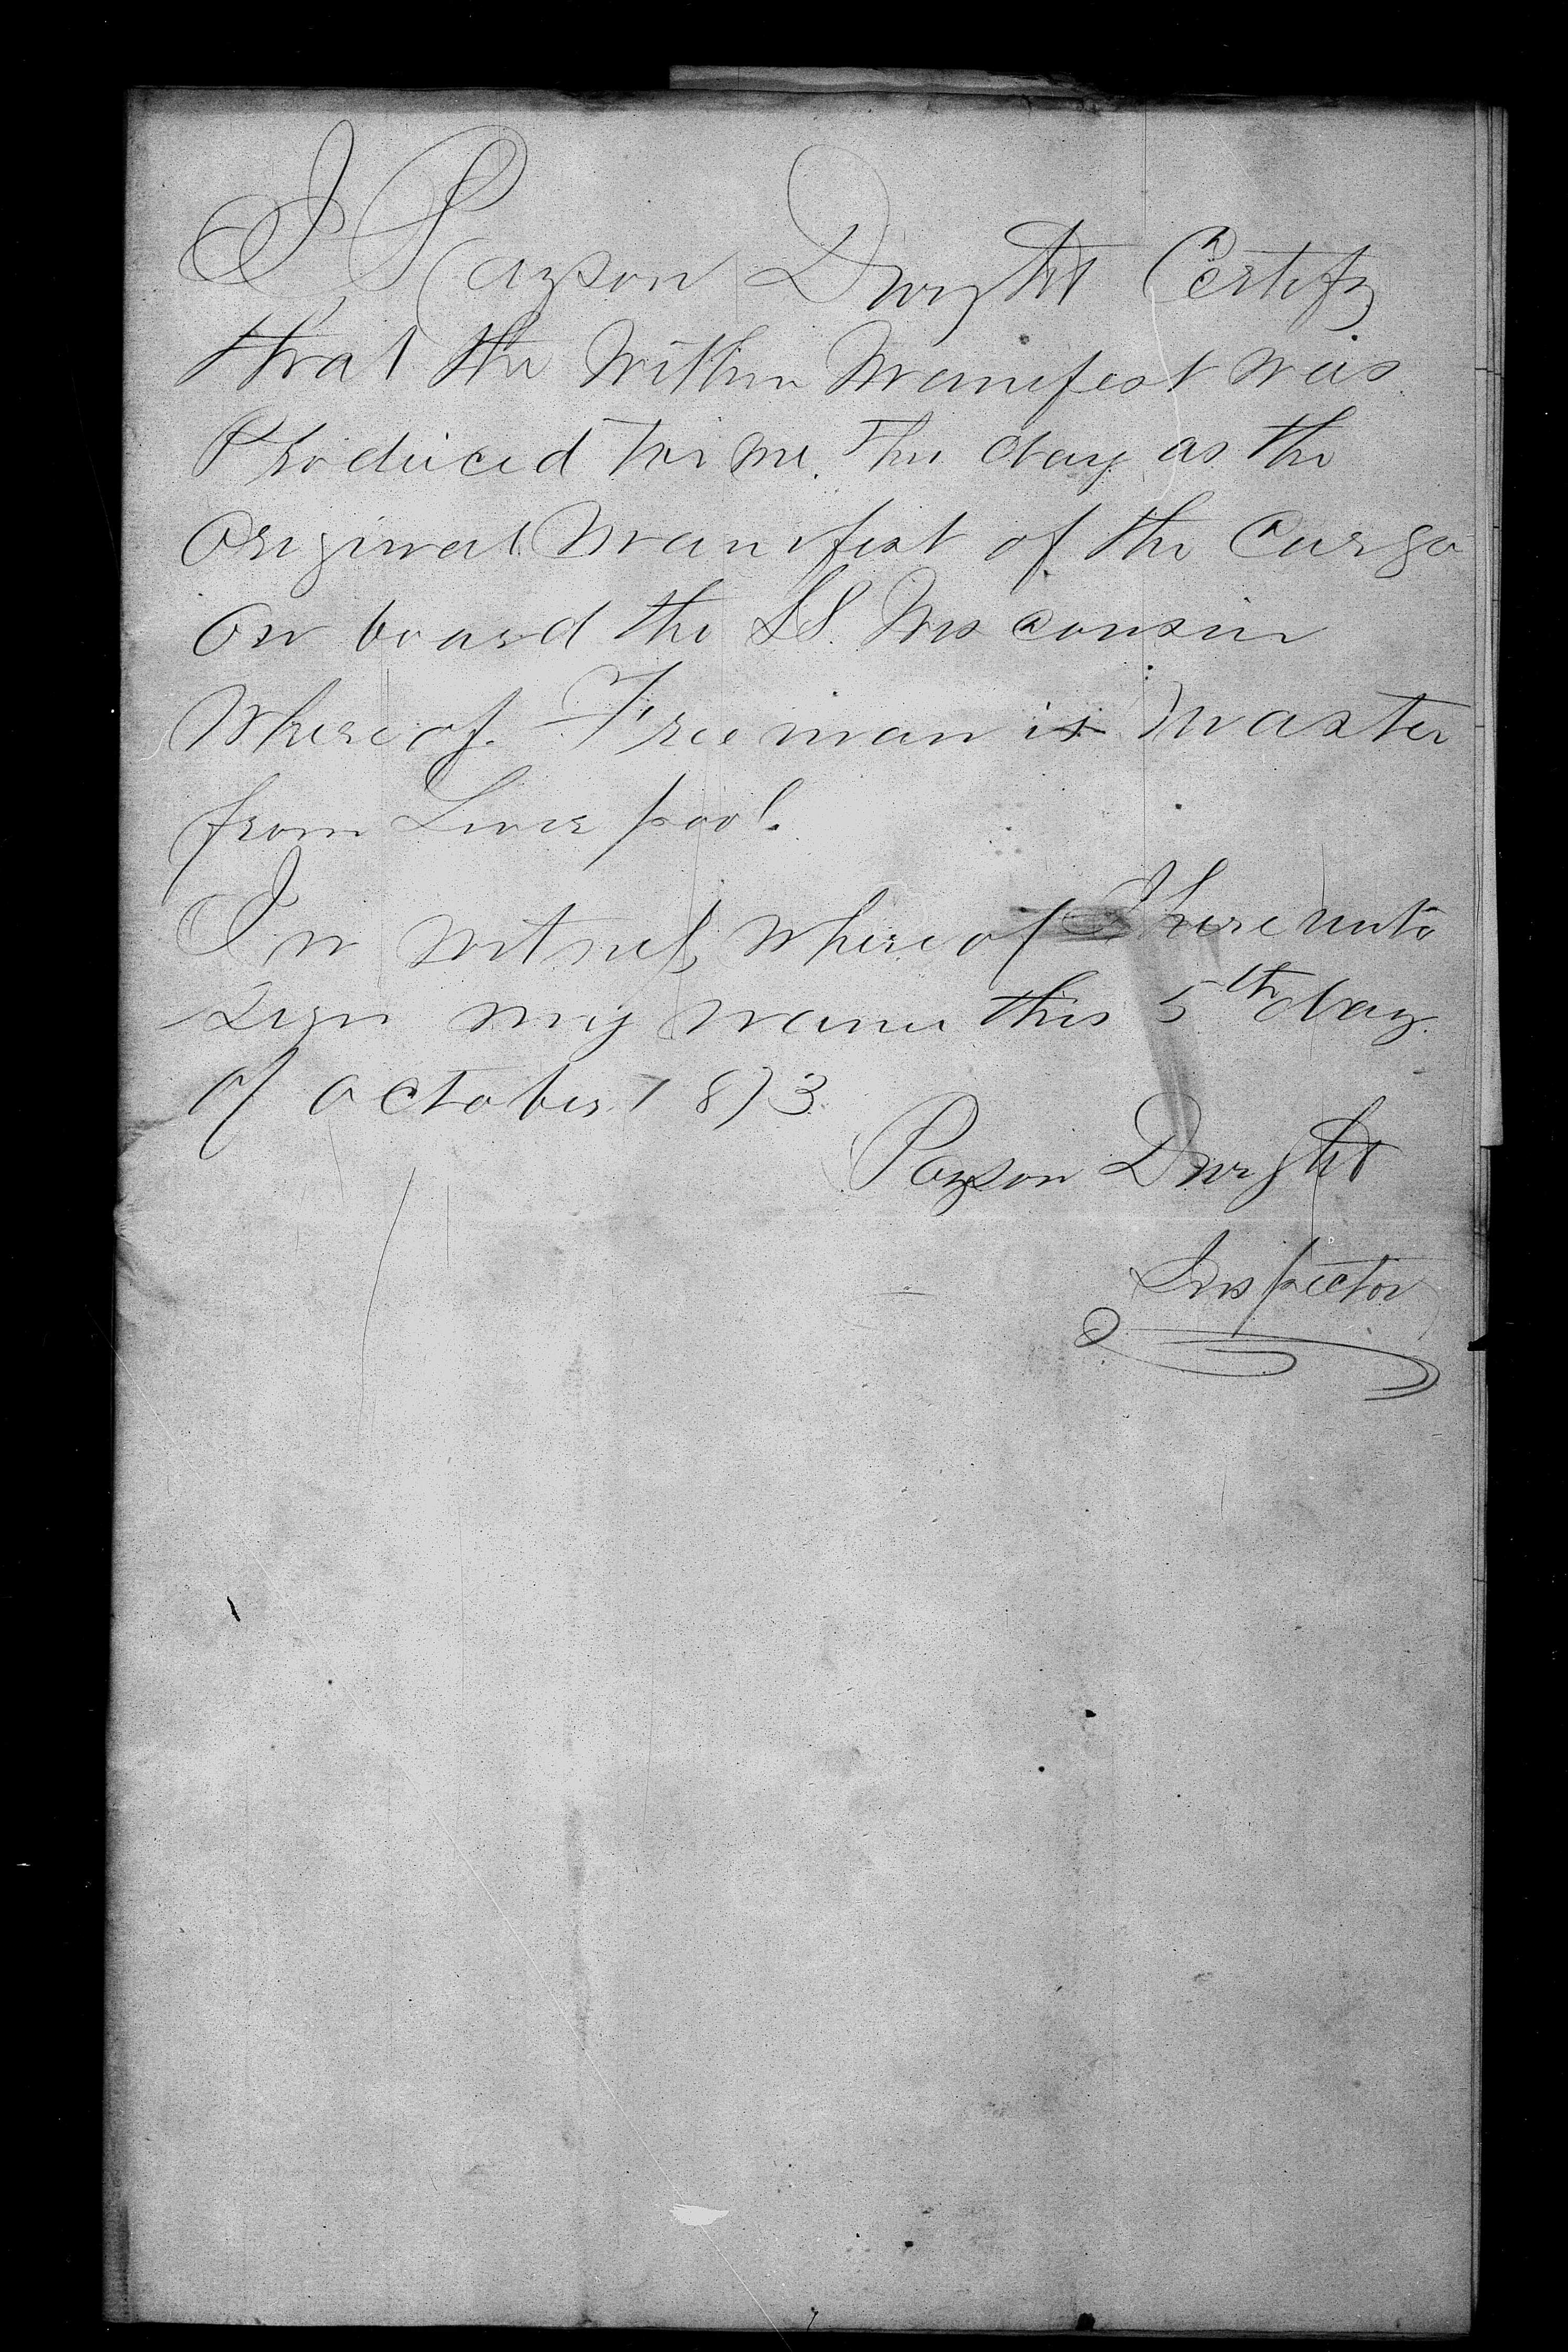 I Payson Dwight Certify
that the Within Manifest was
Produced to me This day as the
Original Manifest of the Cargo
On board the SS. Wisconsin
Whereof Freeman is Master
from Liverpool.
In witness whereof I hereunto
Sign my name this 5th day
Of October 1873
Payson Dwight
Inspector